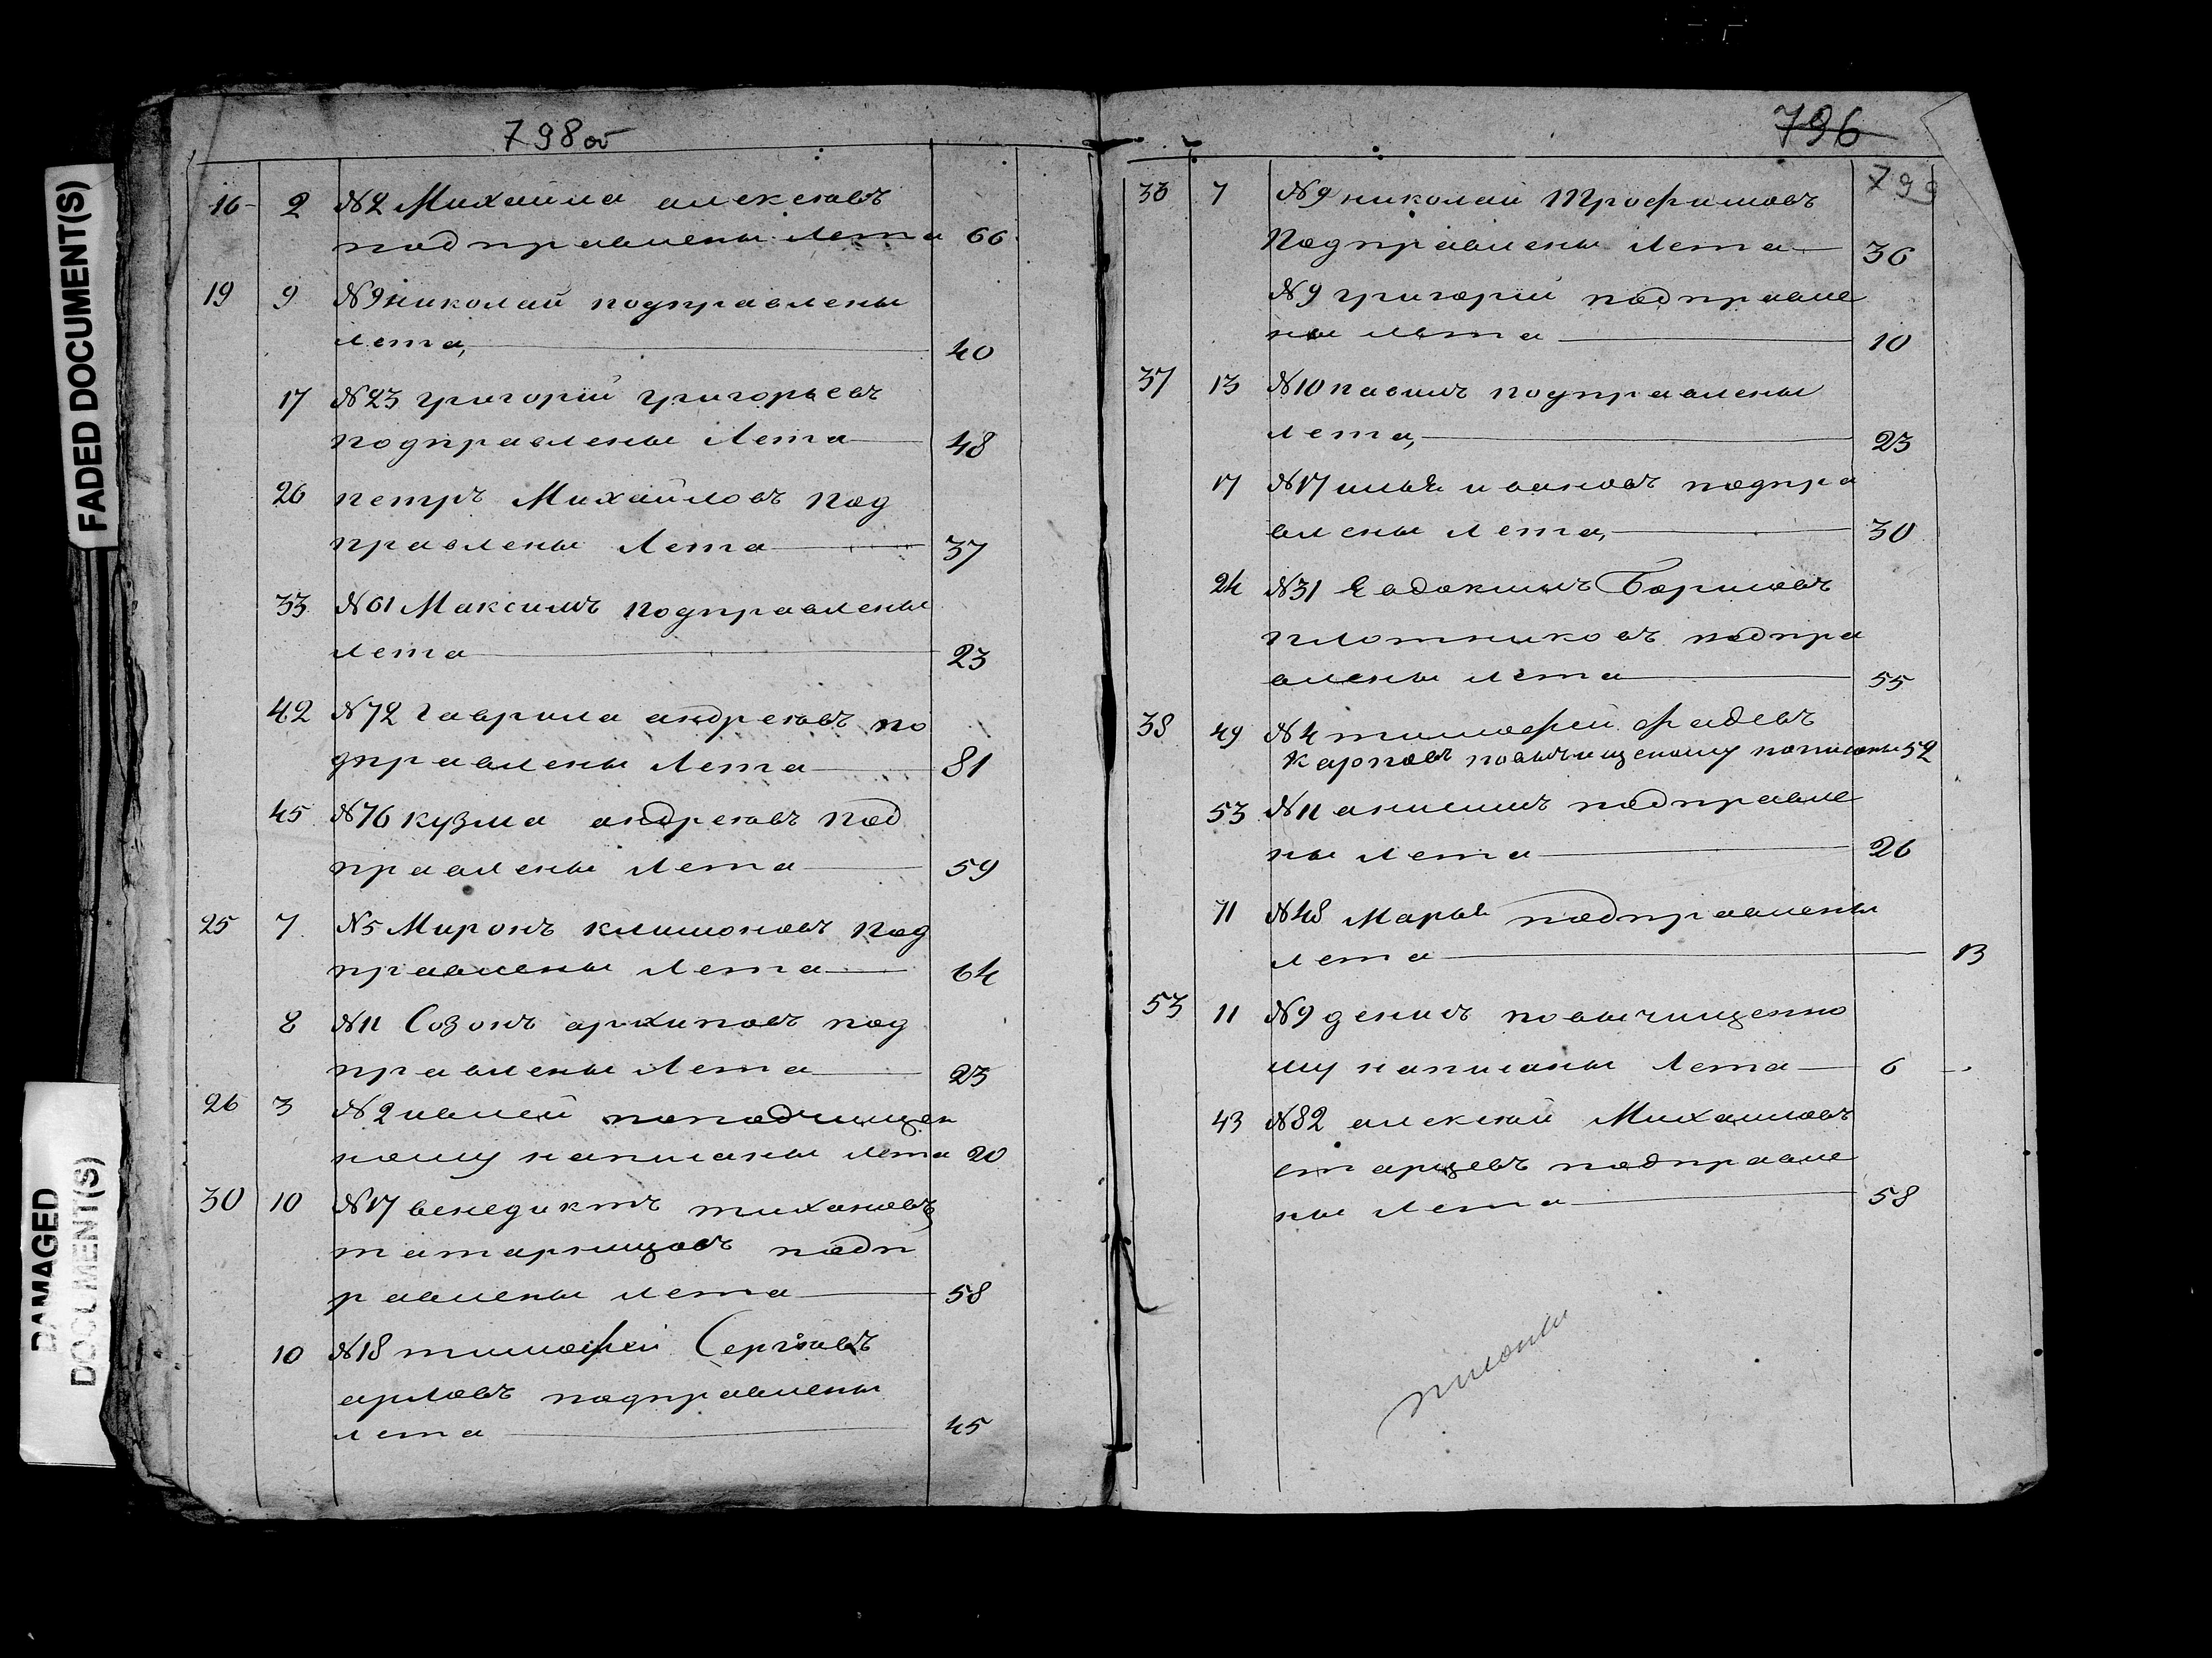 FADED DOCUMENT(S)
DAMAGED
DOCUMENT(S)
798об
16 2 №2 Михаила алексеевъ
подправлены лета 66
19 9 №9 николай подправлены
лета, 40
17 №23 григорий григорьевъ
подправлены лета 48
26 петръ Михайловъ под
правлены лета 37
33 №61 Максимъ подправлены
лета 23
42 №72 гаврила андреевъ по
дправлены лета 81
45 №76 кузма андреевъ под
правлены лета 59
25 7 №5 Миронъ климоновъ под
правлены лета 64
8 №11 Созонъ архиповъ под
правлены лета 23
26 3 №2 поподчищен
ному написаны лета 20
30 10 №17 венедиктъ тихоновъ
татарницовъ подп
равлены лета 58
10 №18 тимофей Сергѣевъ
арловъ подправлены
лета 45
796
799
33 7 №9 николай Трофимовъ
Подправлены лета 36
№9 григорий подправле
ны лета 10
37 13 №10 павилъ подправлены
лета, 23
17 №17 илья ивановъ подпра
влены лета, 30
24 №31 Евдокимъ Борисовъ
плотниковъ подпра
влены лета 55
38 49 №4 тимофей фадевъ
Карповъ повычищеному написаны 52
53 №11 анисимъ подправле
ны лета 26
71 №48 Марья подправлены
лета 13
53 11 №9 денисъ повычищенно
му написаны лета 6
43 №82 алексей Михаиловъ
старцевъ подправле
ны лета 58